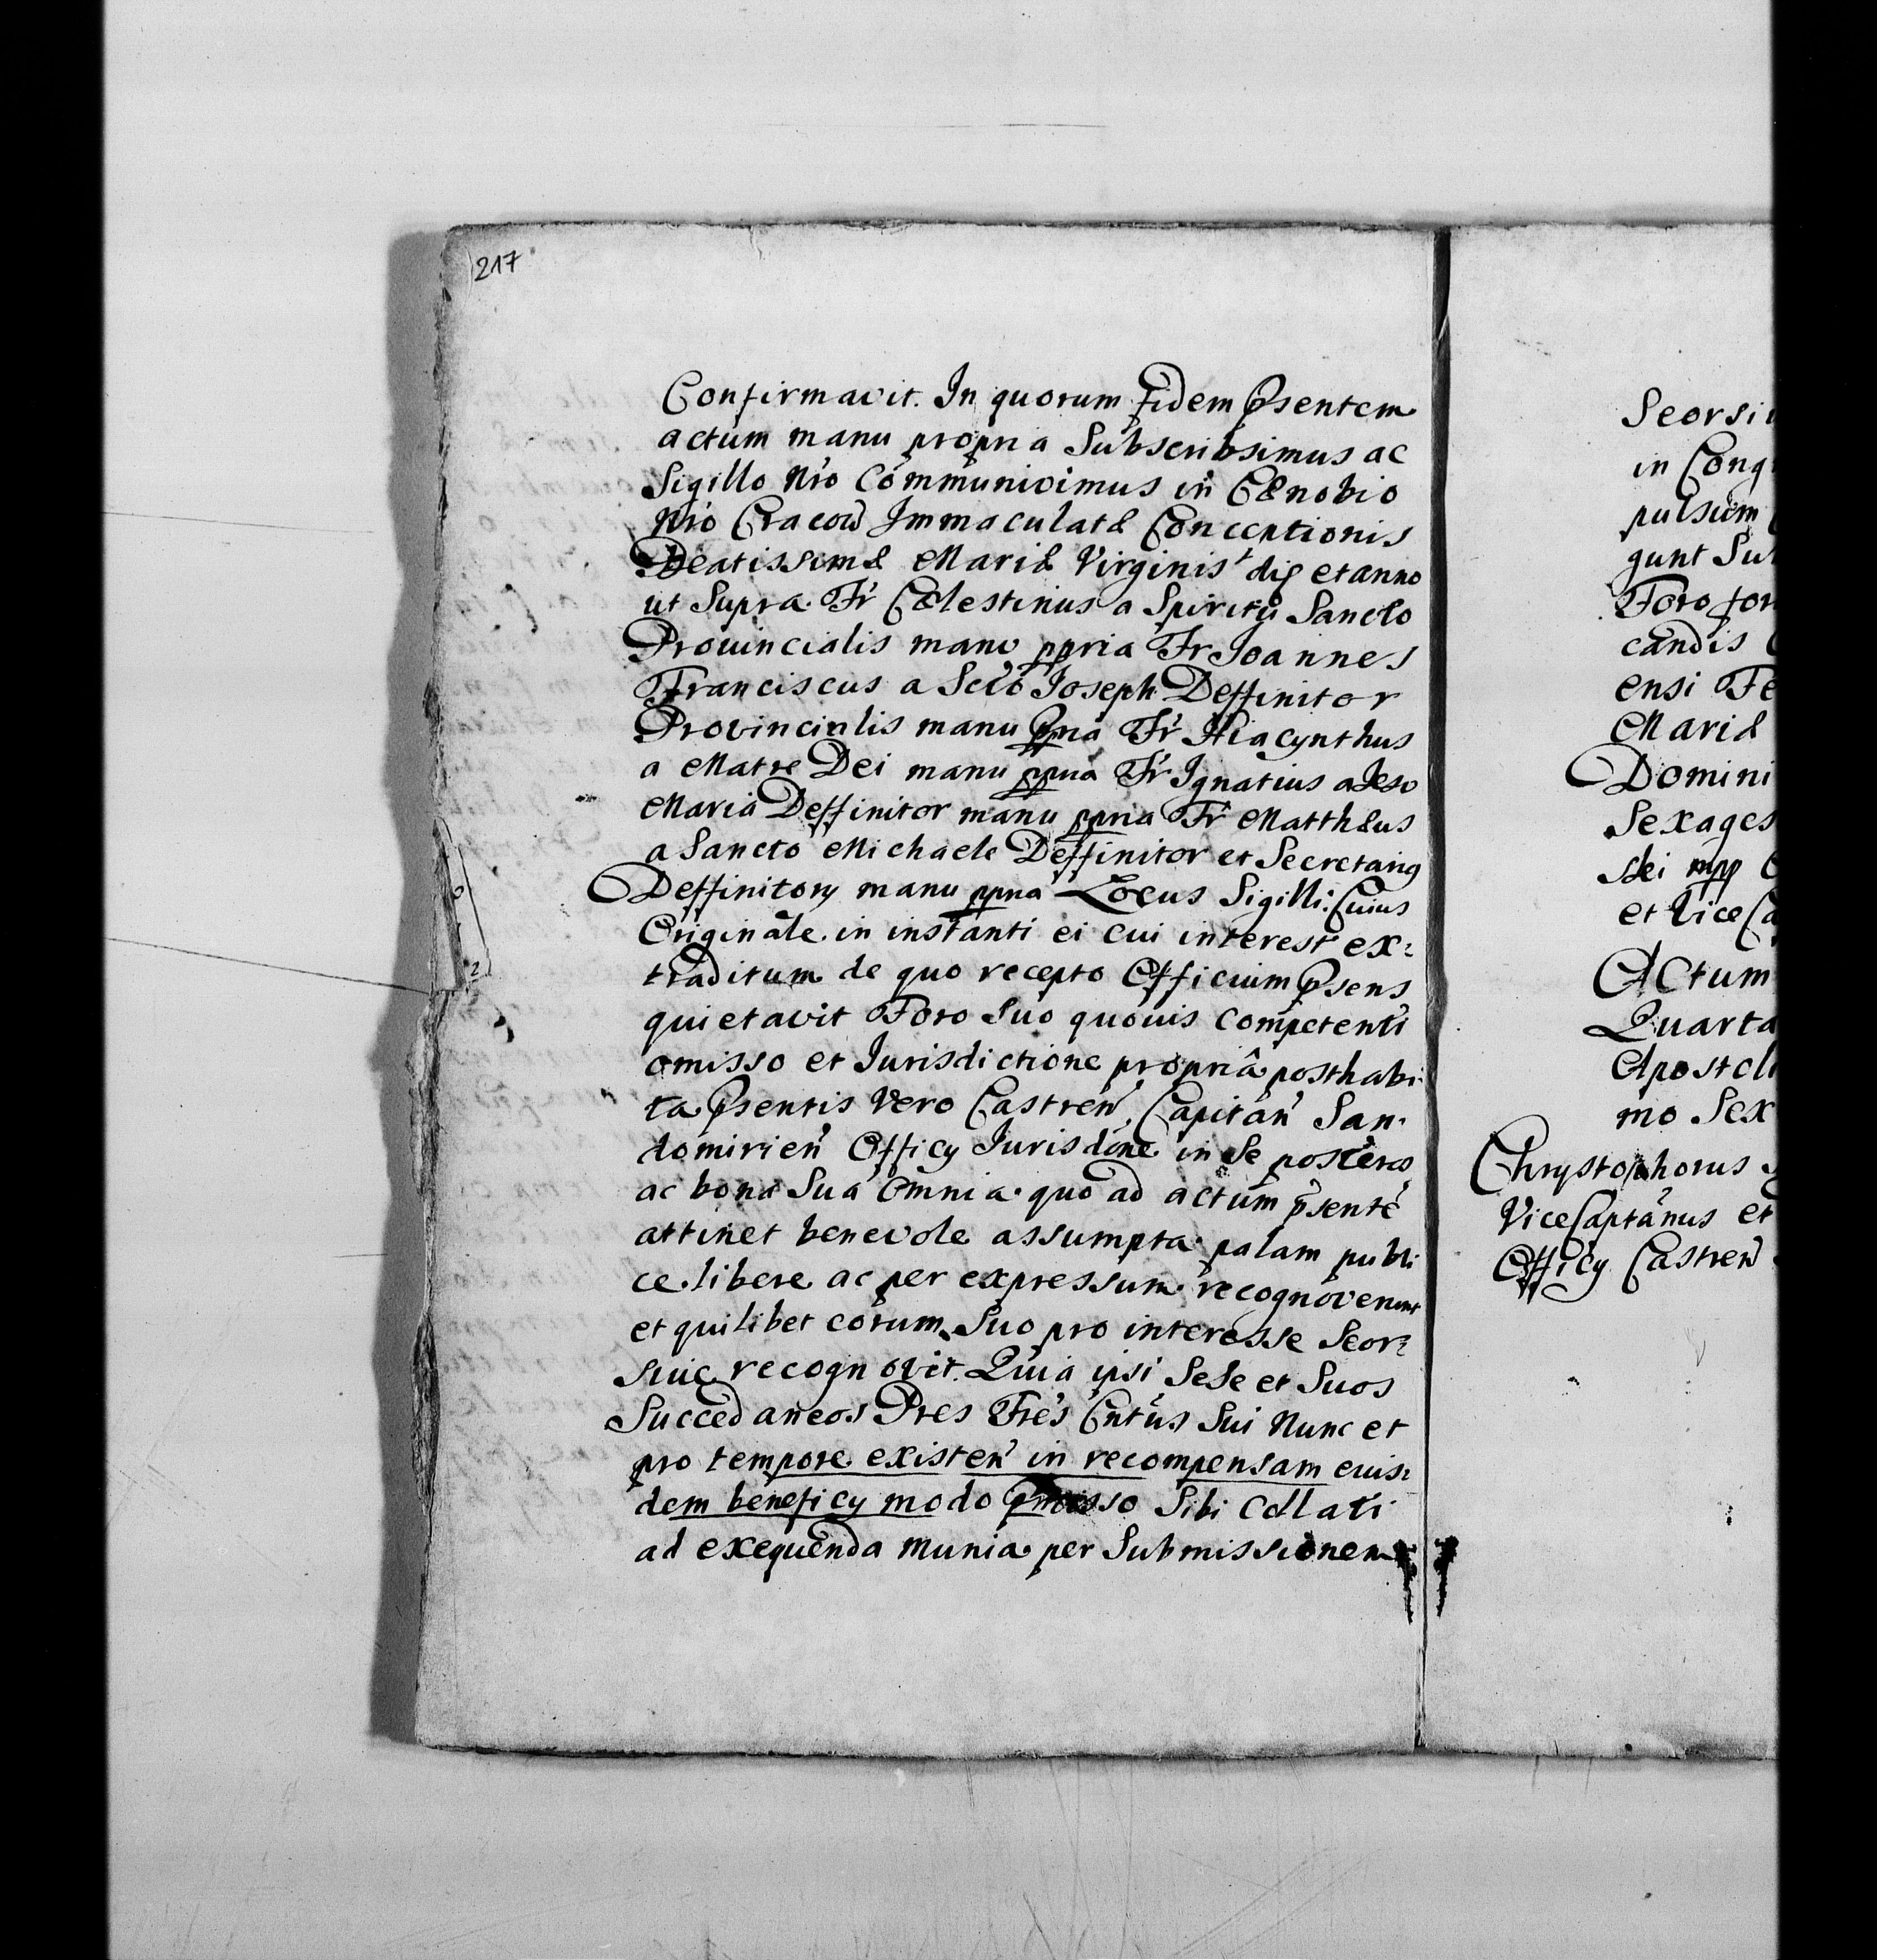 217
Confirmavit. In quorum fidem Psentem
actum manu propria Subscribsimus ac
Sigillo Nro Communivimus in Cænobio
Nro Cracow Immaculatæ Conceptionis
Beatissimæ Mariæ Virginis die et anno
ut Supra. Fr Cælestinus a Spiritu Sancto
Provincialis manu ppria Fr Joannes
Franciscus a Scto Joseph Deffinitor
Provincialis manu ppria Fr Hiacynthus
a Matre Dei manu ppria Fr Ignatius a Jesu
Maria Deffinitor manu ppria Fr Matthæus
a Sancto Michaele Deffinitor et Secretarius
Deffinitory manu ppria Locus Sigilli: Cuius
Originale in instanti ei cui interest ex:
traditum de quo recepto Officium Psens
quietavit Foro Suo quovis Competenti
omisso et Jurisdictione propriâ posthabi
ta Psentis Vero Castren, Capitan San
domirien Officy Jurisdone in Se posteros
ac bona Sua Omnia quo ad actum psente
attinet benevole assumpta palam publi
ce libere ac per expressum recognoverunt
et quilibet eorum Suo pro interesse Seor:
sive recognovit. Quia ipsi Sese et Suos
Succedaneos Pres Fres Cntus Sui Nunc et
pro tempore existen in recompensam euis:
dem beneficy modo Sibi Collati
ad exequenda munia per Submissionem
Seorsi
in Cong
pulsum
gunt Su
Foro for
candis
ensi Fe
Mariæ
Domini
Sexages
dei mpp
et Vice Ca
Actum
Quarta
Apostoli
mo Sex
Chrystophorus
ViceCaptanus et
Officy Castren